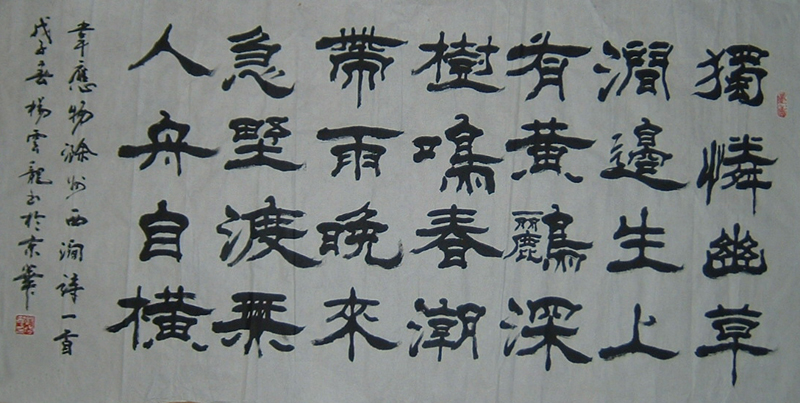 獨憐幽草
澗邊生上
有黃鸝深
樹鳴春潮
帶雨晚來
急野渡無
人舟自橫
韋應物滁州西澗詩一首
戊子春楊雲龍书於京華